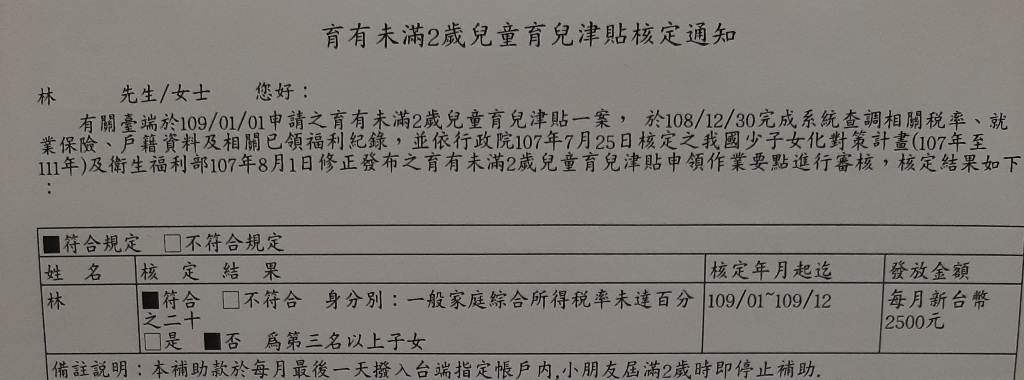 育有未滿2歲兒童育兒津貼核定通知
林 先生/女士 您好：
有關臺端於109/01/01申請之育有未滿2歲兒童育兒津貼一案， 於108/12/30完成系統查調相關稅率、就
業保險、戶籍資料及相關已領福利紀錄，並依行政院107年7月25日核定之我國少子女化對策計畫(107年至
111年)及衛生福利部107年8月1日修正發布之育有未滿2歲兒童育兒津貼申領作業要點進行審核，核定結果如下
：
■符合規定 □不符合規定
姓 名 核 定 結 果 核定年月起迄 發放金額
林 ■符合 □不符合 身分別：一般家庭綜合所得稅率未達百分 109/01~109/12 每月新台幣
之二十 2500元
□是 ■否 為第三名以上子女
備註說明：本補助款於每月最後一天撥入台端指定帳戶內,小朋友屆滿2歲時即停止補助.